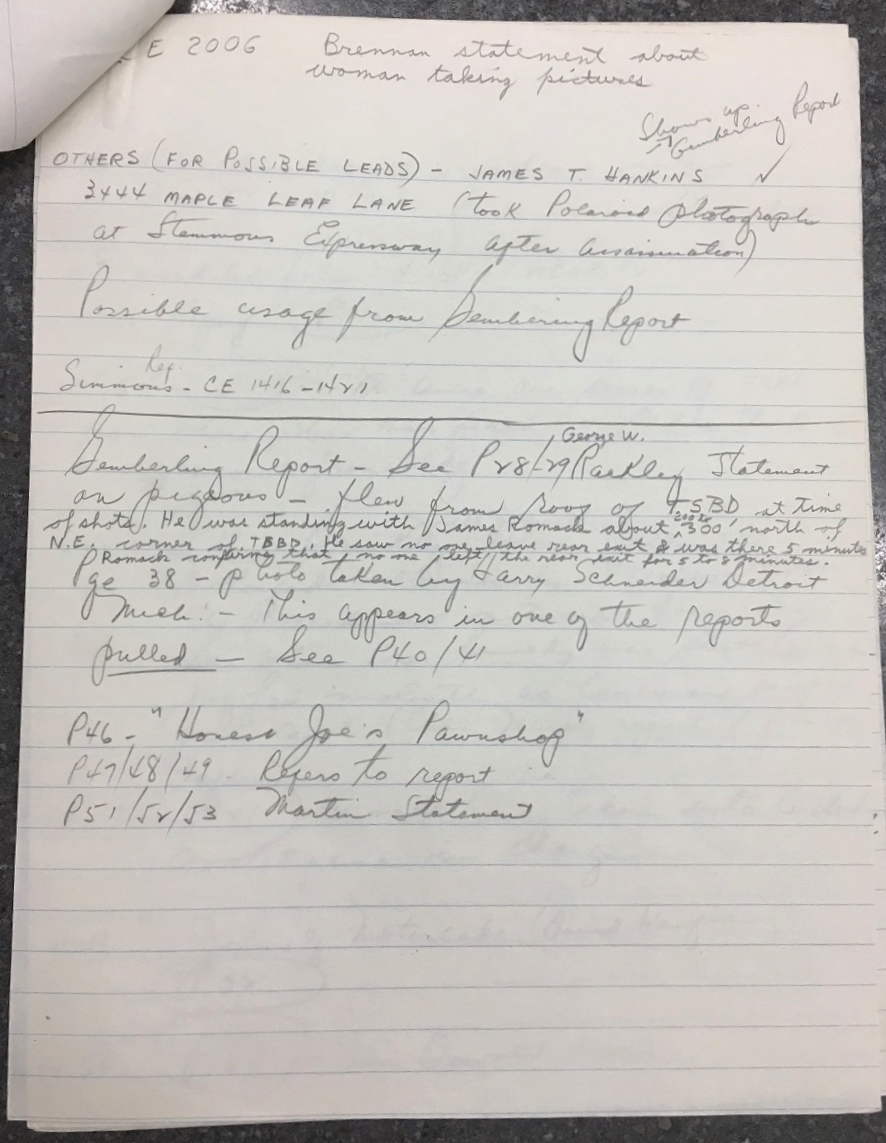 E 2006 Brennan statement about
woman taking pictures
Shows up
Gemberling Report
OTHERS (FOR POSSIBLE LEADS) - JAMES T. HANKINS ✓
3444 MAPLE LEAF LANE (took Polaroid photograph
at Stemmons Expressway after assassination)
Possible usage from Gemberling Report
Rep.
Simmons - CE 1416-1421
George W.
Gemberling Report - See P28/29 Rackley Statement
on pigeons - flew from roof of TSBD at time
of shots. He was standing with James Romack about 300' north of
N.E. corner of TBBD. He saw no one leave rear exit & was there 5 minutes
Romack confirms that no one left the rear exit for 5 to 8 minutes.
Pge 38 - photo taken by Larry Schneider Detroit
Mich. - This appears in one of the reports
pulled - See P40/41
P46 - "Honest Joe's Pawnshop"
P47/48/49 Refers to report
P51/52/53 Martin Statement